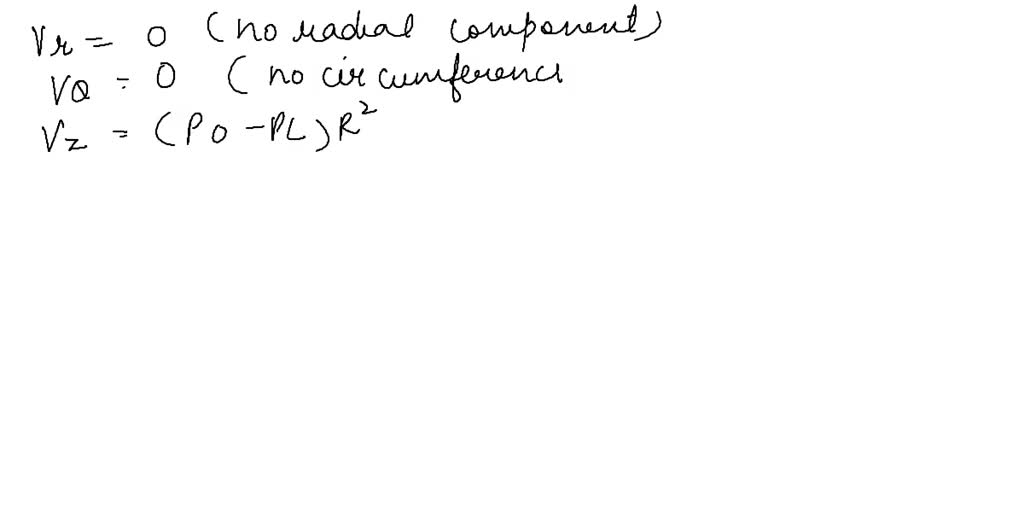 Vr = 0 (no radial component)
VQ = 0 (no circumference
Vz = (PO - PL) R²